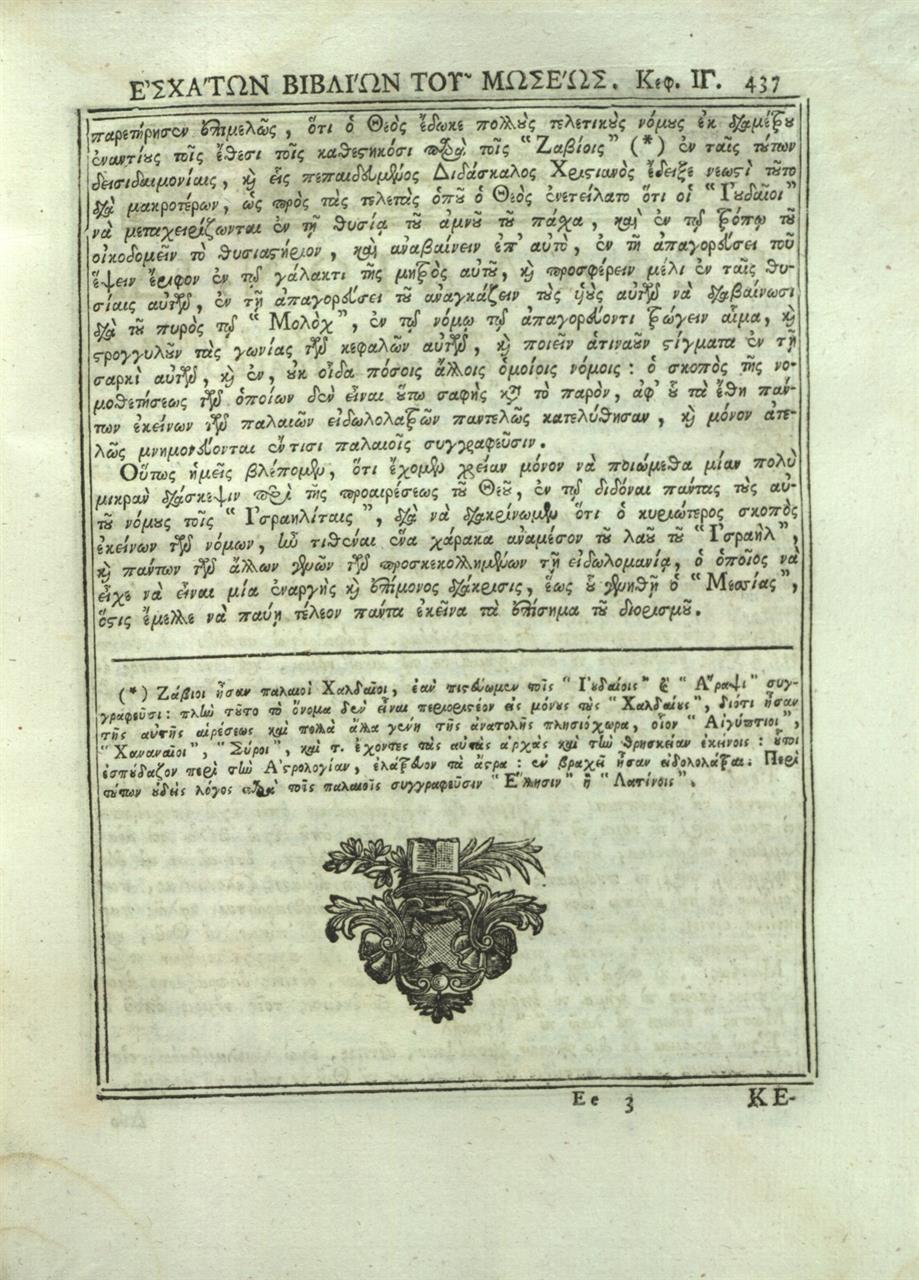 ἘΣΧΑ´ΤΩΝ ΒΙΒΛΙ´ΩΝ ΤΟΥ͂ ΜΩΣΕ´ΩΣ. Κεφ. ΙΓ. 437
παρετήρησεν ἐπιμελῶς, ὅτι ὁ Θεὸς ἔδωκε πολλοὺς τελετικοὺς νόμους ἐκ διαμέτρου
ἐναντίους τοῖς ἔθεσι τοῖς καθεστηκόσι παρὰ τοῖς "Ζαβίοις" (*) ἐν ταῖς τούτων
δεισιδαιμονίαις, καὶ εἷς πεπαιδευμένος Διδάσκαλος Χριστιανὸς ἔδειξε νεωστὶ τοῦτο
διὰ μακροτέρων, ὡς πρὸς τὰς τελετὰς ὁποῦ ὁ Θεὸς ἐνετείλατο ὅτι οἱ "Ἰουδαῖοι"
νὰ μεταχειρίζωνται ἐν τῇ θυσίᾳ τοῦ ἀμνοῦ τοῦ πάσχα, καὶ ἐν τῷ τρόπῳ τοῦ
οἰκοδομεῖν τὸ θυσιαστήριον, καὶ ἀναβαίνειν ἐπ' αὐτὸ, ἐν τῇ ἀπαγορεύσει τοῦ
ἕψειν ἔριφον ἐν τῷ γάλακτι τῆς μητρὸς αὐτοῦ, καὶ προσφέρειν μέλι ἐν ταῖς θυ-
σίαις αὐτῶν, ἐν τῇ ἀπαγορεύσει τοῦ ἀναγκάζειν τοὺς υἱοὺς αὐτῶν νὰ διαβαίνωσι
διὰ τοῦ πυρὸς τῷ "Μολὸχ", ἐν τῷ νόμῳ τῷ ἀπαγορεύοντι τρώγειν αἷμα, καὶ
στρογγυλοῦν τὰς γωνίας τῶν κεφαλῶν αὐτῶν, καὶ ποιεῖν ἁτιναοῦν στίγματα ἐν τῇ
σαρκὶ αὐτῶν, καὶ ἐν, οὐκ οἶδα πόσοις ἄλλοις ὁμοίοις νόμοις: ὁ σκοπὸς τῆς νο-
μοθετήσεως τῶν ὁποίων δὲν εἶναι οὕτω σαφὴς κατὰ τὸ παρὸν, ἀφ' οὗ τὰ ἔθη πάν-
των ἐκείνων τῶν παλαιῶν εἰδωλολατρῶν παντελῶς κατελύθησαν, καὶ μόνον ἀτε-
λῶς μνημονεύονται ἔν τισι παλαιοῖς συγγραφεῦσιν.
Οὕτως ἡμεῖς βλέπομεν, ὅτι ἔχομεν χρείαν μόνον νὰ ποιώμεθα μίαν πολὺ
μικρὰν διάσκεψιν περὶ τῆς προαιρέσεως τοῦ Θεοῦ, ἐν τῷ διδόναι πάντας τοὺς αὐ-
τοῦ νόμους τοῖς "Ἰσραηλίταις", διὰ νὰ διακρίνωμεν ὅτι ὁ κυριώτερος σκοπὸς
ἐκείνων τῶν νόμων, ἦν τιθέναι ἕνα χάρακα ἀναμέσον τοῦ λαοῦ τοῦ "Ἰσραὴλ",
καὶ πάντων τῶν ἄλλων γενῶν τῶν προσκεκολλημένων τῇ εἰδωλομανίᾳ, ὁ ὁποῖος νὰ
εἶχε νὰ εἶναι μία ἐναργὴς καὶ ἐπίμονος διάκρισις, ἕως οὗ γεννηθῇ ὁ "Μεσσίας",
ὅστις ἔμελλε νὰ παύῃ τέλεον πάντα ἐκεῖνα τὰ ἐπίσημα τοῦ διορισμοῦ.
(*) Ζάβιοι ἦσαν παλαιοὶ Χαλδαῖοι, ἐὰν πιστεύωμεν τοῖς "Ἰουδαίοις" καὶ "Ἄραψι" συγ-
γραφεῦσι: πλὴν τοῦτο τὸ ὄνομα δὲν εἶναι περιοριστέον εἰς μόνους τοὺς "Χαλδαίους", διότι ἦσαν
τῆς αὐτῆς αἱρέσεως καὶ πολλὰ ἄλλα γένη τῆς ἀνατολῆς πλησιόχωρα, οἷον "Αἰγύπτιοι",
"Χαναναῖοι", "Σύροι", καὶ τ. ἔχοντες τὰς αὐτὰς ἀρχὰς καὶ τὴν θρησκείαν ἐκείνοις: οὗτοι
ἐσπούδαζον περὶ τὴν Ἀστρολογίαν, ἐλάτρευον τὰ ἄστρα: ἐν βραχεῖ ἦσαν εἰδολολάτραι. Περὶ
τούτων οὐδεὶς λόγος παρὰ τοῖς παλαιοῖς συγγραφεῦσιν "Ἕλλησιν" ἢ "Λατίνοις".
Ee 3 ΚΕ-